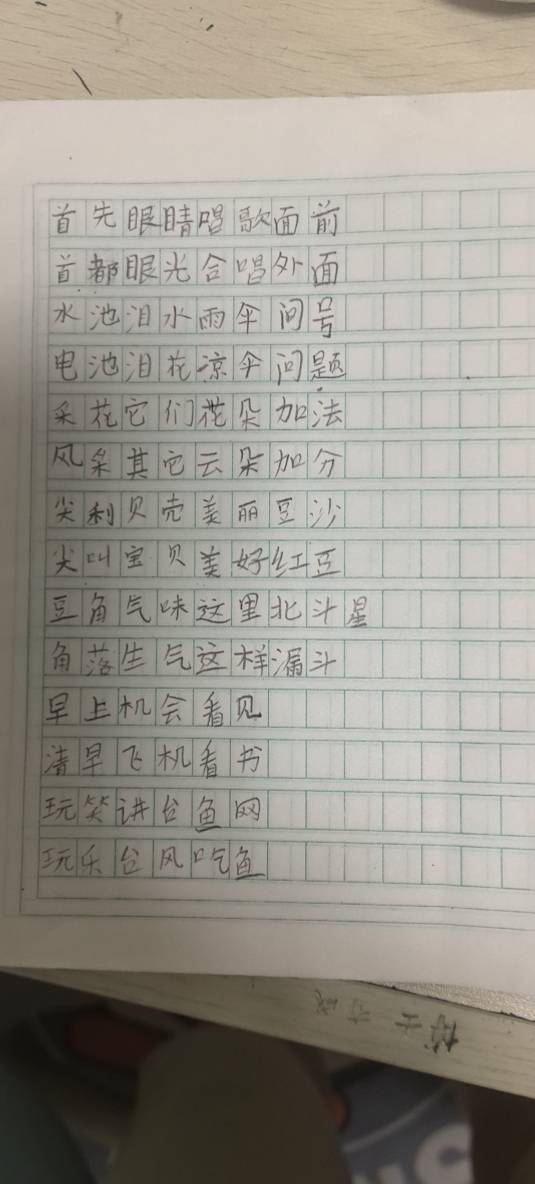 首先眼睛唱歌面前
首都眼光合唱外面
水池泪水雨伞问号
电池泪花凉伞问题
采花它们花朵加法
风朵其它云朵加分
尖利贝壳美丽豆沙
尖叫宝贝美好红豆
豆角气味这里北斗星
角落生气这样漏斗
早上机会看见
清早飞机看书
玩笑讲台鱼网
玩乐台风吃鱼